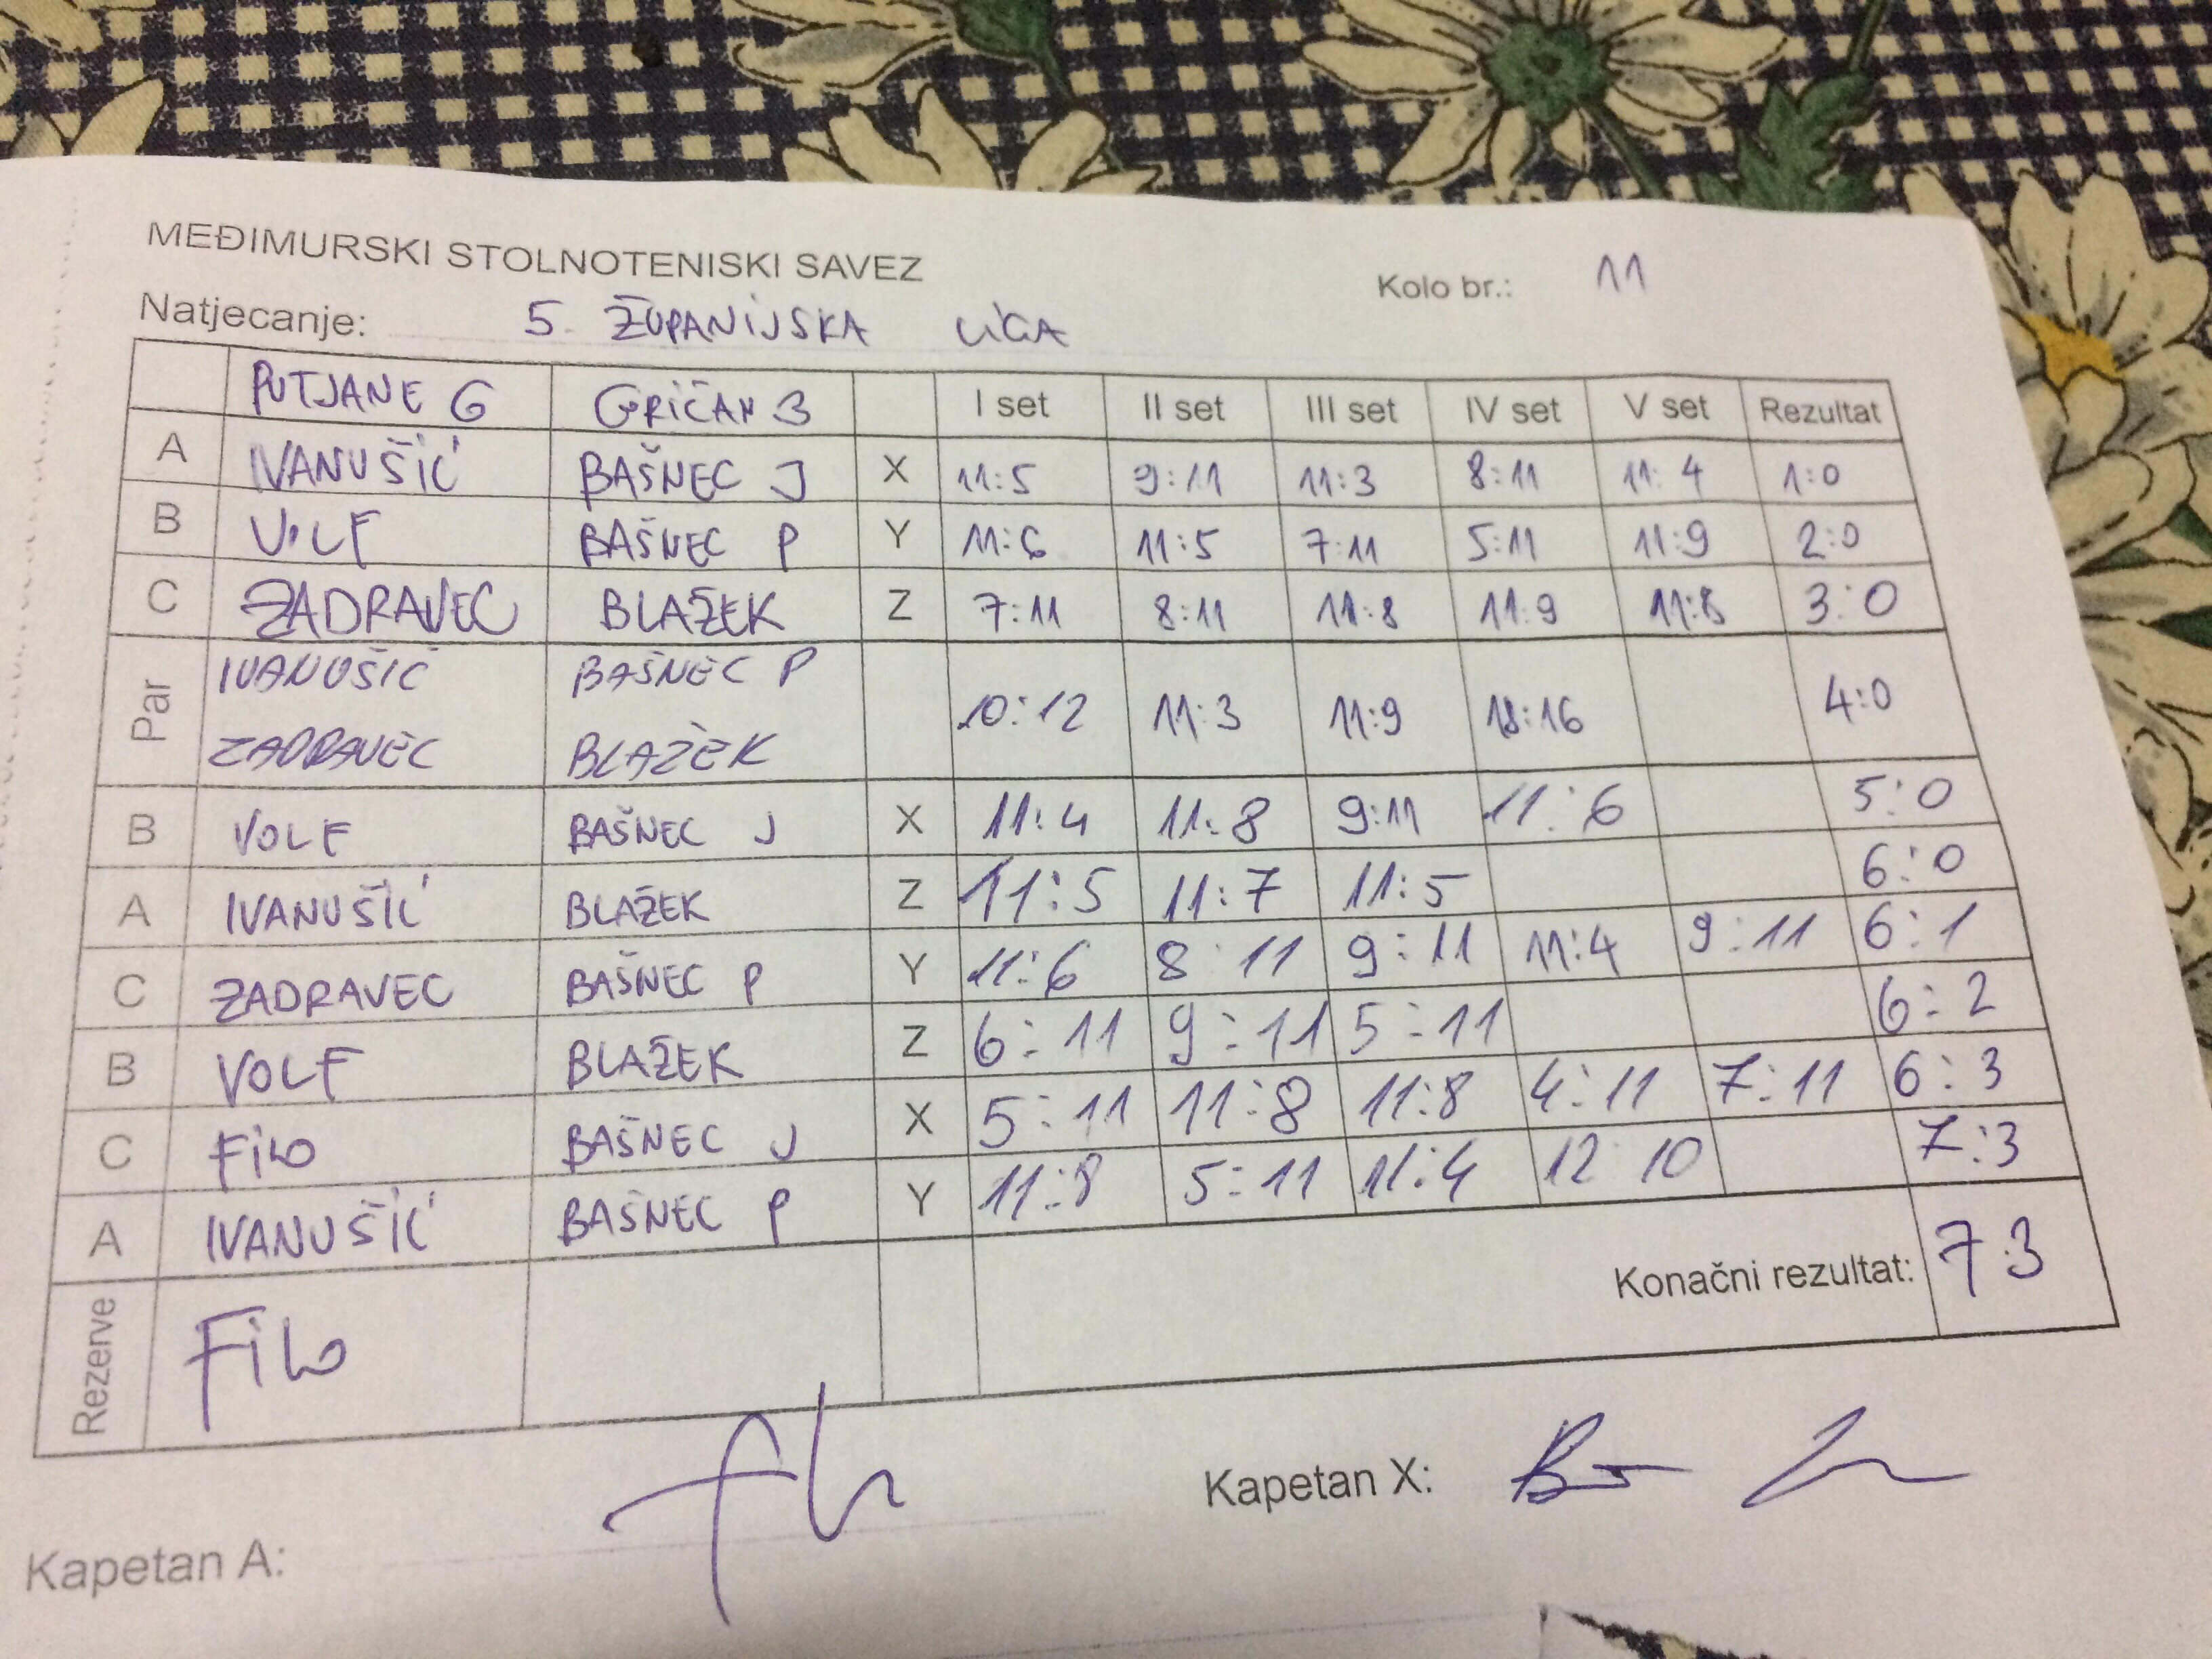 MEĐIMURSKI STOLNOTENISKI SAVEZ
Kolo br.: 11
Natjecanje: 5. ŽUPANIJSKA LIGA
PUTJANE G GRIČAN 3 I set II set III set IV set V set Rezultat
A IVANUŠIĆ BAŠNEC J X 11:5 9:11 11:3 8:11 11:4 1:0
B VOLF BAŠNEC P Y 11:6 11:5 7:11 5:11 11:9 2:0
C ZADRAVEC BLAŽEK Z 7:11 8:11 11:8 11:9 11:8 3:0
Par IVANUŠIĆ BAŠNEC P 10:12 11:3 11:9 18:16 4:0
ZADRAVEC BLAŽEK
B VOLF BAŠNEC J X 11:4 11:8 9:11 11:6 5:0
A IVANUŠIĆ BLAŽEK Z 11:5 11:7 11:5 6:0
C ZADRAVEC BAŠNEC P Y 11:6 8:11 9:11 11:4 9:11 6:1
B VOLF BLAŽEK Z 6:11 9:11 5:11 6:2
C FILO BAŠNEC J X 5:11 11:8 11:8 4:11 7:11 6:3
A IVANUŠIĆ BAŠNEC P Y 11:8 5:11 11:4 12:10 7:3
Rezerve FILO Konačni rezultat: 7:3
Kapetan X:
Kapetan A: